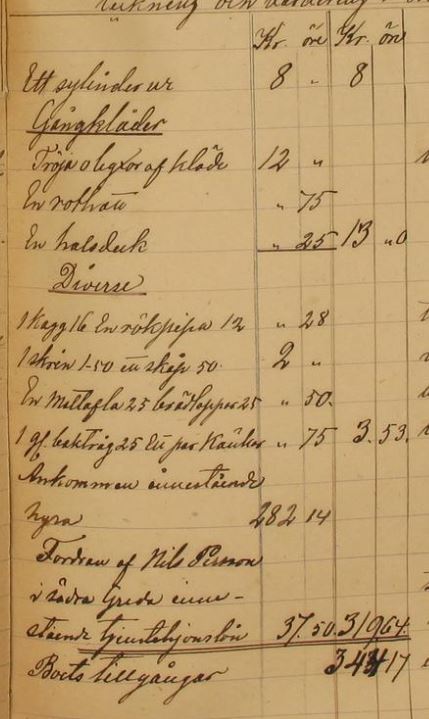 räkning och värdering
Kr. öre Kr. öre
Ett sylinder ur 8 " 8 "
Gångkläder
Tröja o byxor af kläde 12 "
En rothatt " 75
En halsduk " 25 13 "0
Diverse
1 Kagg 16 En rökpipa 12 " 28
1 skrin 1-50 ett skåp 50 2 "
En Mattafla 25 brädlappar 25 " 50.
1 gl. baktråg 25 Ett par " 75 3. 53.
Ankommen innestående
hyra 282 14
Fordran af Nils Persson
i södra Greda inne-
stående tjenstehjonslön 37. 50. 319 64.
Boets tillgångar 344 17